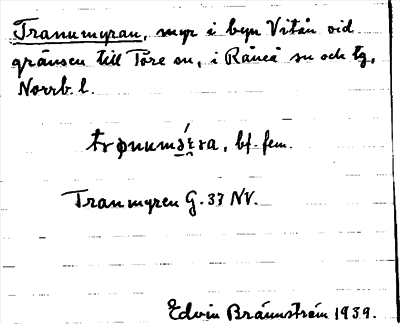 Tranumyran, myr i byn Vitån vid
gränsen till Töre sn, i Råneå sn och tg,
Norrb. l.
bf. fem.
Tranmyren G. 33 NV.
Edvin Brännström 1939.